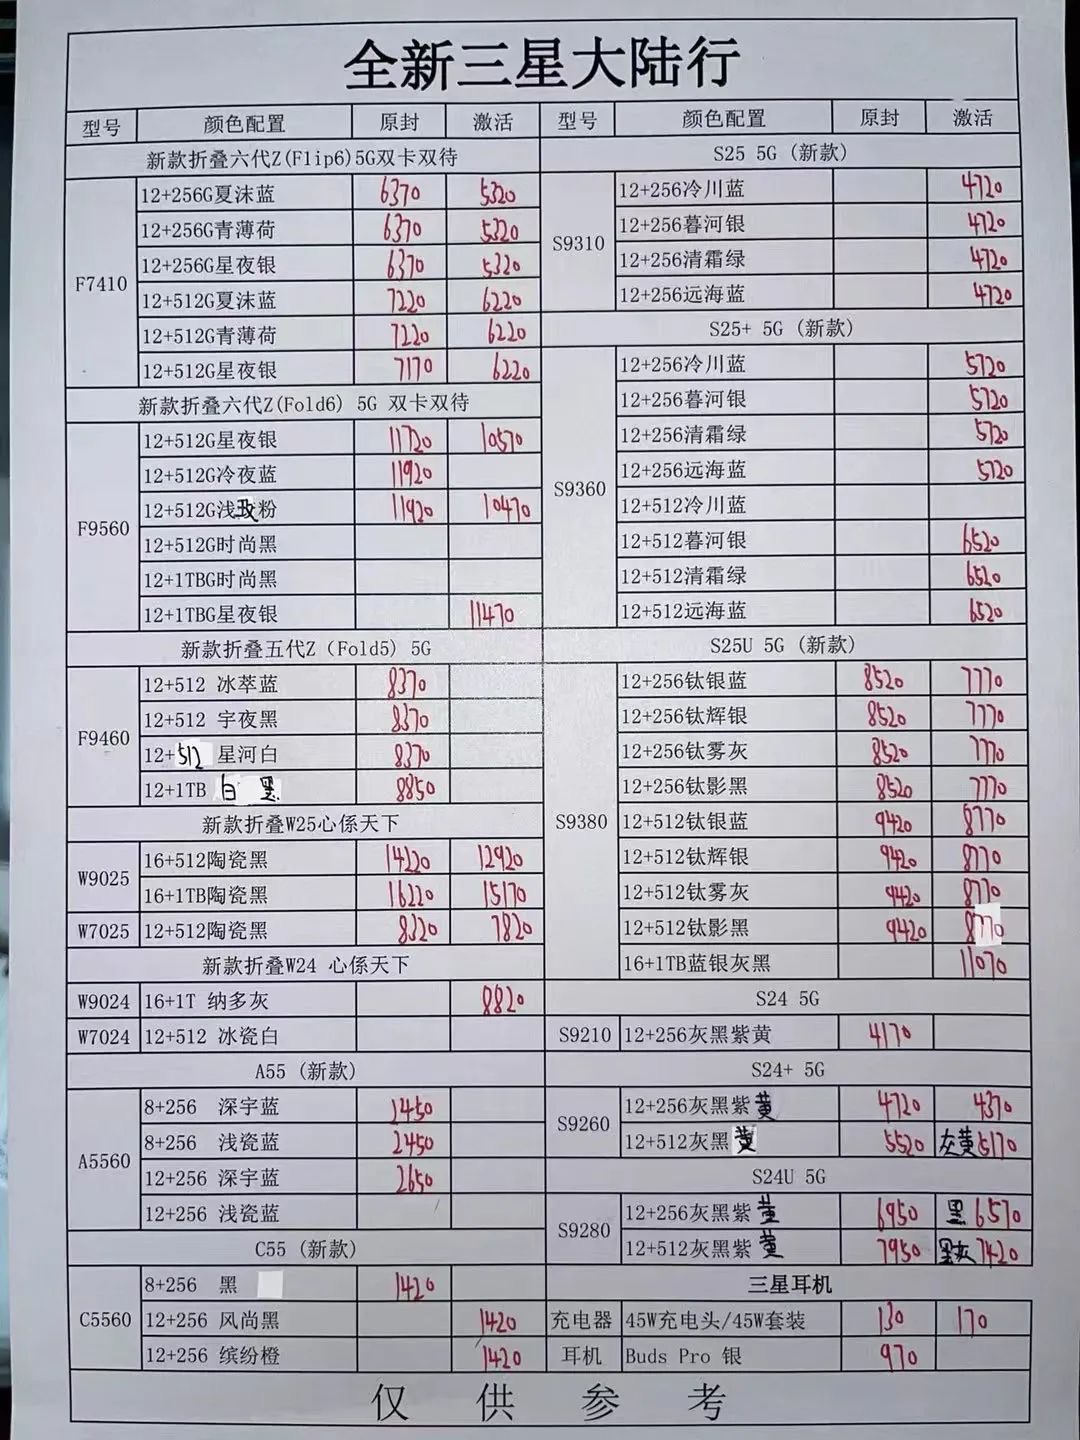 全新三星大陆行
型号 颜色配置 原封 激活
新款折叠六代Z(Flip6)5G双卡双待
F7410
12+256G夏沫蓝 6370 5320
12+256G青薄荷 6370 5320
12+256G星夜银 6370 5320
12+512G夏沫蓝 7220 6220
12+512G青薄荷 7220 6220
12+512G星夜银 7170 6220
新款折叠六代Z(Fold6) 5G 双卡双待
F9560
12+512G星夜银 11720 10570
12+512G冷夜蓝 11920
12+512G浅玫粉 11920 10470
12+512G时尚黑
12+1TBG时尚黑
12+1TBG星夜银 11470
新款折叠五代Z（Fold5) 5G
F9460
12+512 冰萃蓝 8370
12+512 宇夜黑 8370
12+512 星河白 8370
12+1TB 白 黑 8850
新款折叠W25心係天下
W9025
16+512陶瓷黑 14220 12920
16+1TB陶瓷黑 16220 15170
W7025 12+512陶瓷黑 8320 7820
新款折叠W24 心係天下
W9024 16+1T 纳多灰 8820
W7024 12+512 冰瓷白
A55 (新款)
A5560
8+256 深宇蓝 2450
8+256 浅瓷蓝 2450
12+256 深宇蓝 2650
12+256 浅瓷蓝
C55 (新款)
C5560
8+256 黑 1420
12+256 风尚黑 1420
12+256 缤纷橙 1420
型号 颜色配置 原封 激活
S25 5G (新款)
S9310
12+256冷川蓝 4720
12+256暮河银 4720
12+256清霜绿 4720
12+256远海蓝 4720
S25+ 5G (新款)
S9360
12+256冷川蓝 5720
12+256暮河银 5720
12+256清霜绿 5720
12+256远海蓝 5720
12+512冷川蓝
12+512暮河银 6520
12+512清霜绿 6520
12+512远海蓝 6520
S25U 5G (新款)
S9380
12+256钛银蓝 8520 7770
12+256钛辉银 8520 7770
12+256钛雾灰 8520 7770
12+256钛影黑 8520 7770
12+512钛银蓝 9420 8770
12+512钛辉银 9420 8770
12+512钛雾灰 9420 8770
12+512钛影黑 9420 8770
16+1TB蓝银灰黑 11070
S24 5G
S9210 12+256灰黑紫黄 4170
S24+ 5G
S9260
12+256灰黑紫黄 4720 4370
12+512灰黑黄 5520 灰黄5170
S24U 5G
S9280
12+256灰黑紫黄 6950 黑6570
12+512灰黑紫黄 7950 黑灰7420
三星耳机
充电器 45W充电头/45W套装 130 170
耳机 Buds Pro 银 970
仅供参考